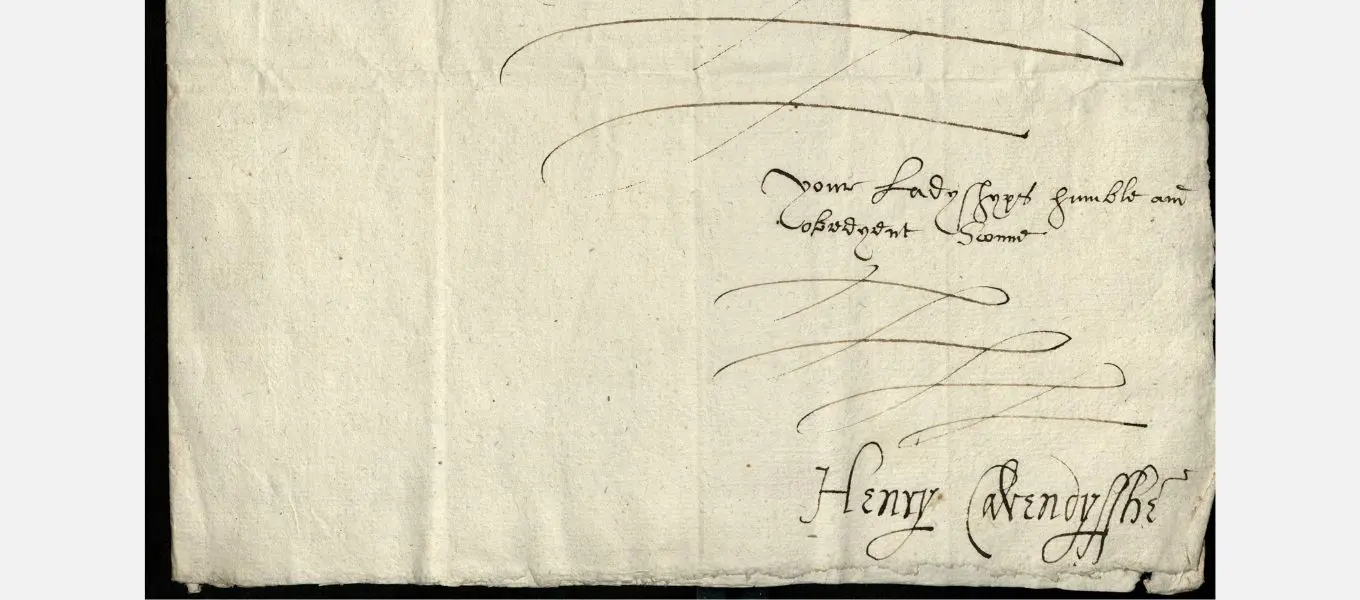 your Ladyshyps humble and
obedyent Sonne
Henry Cavendysshe